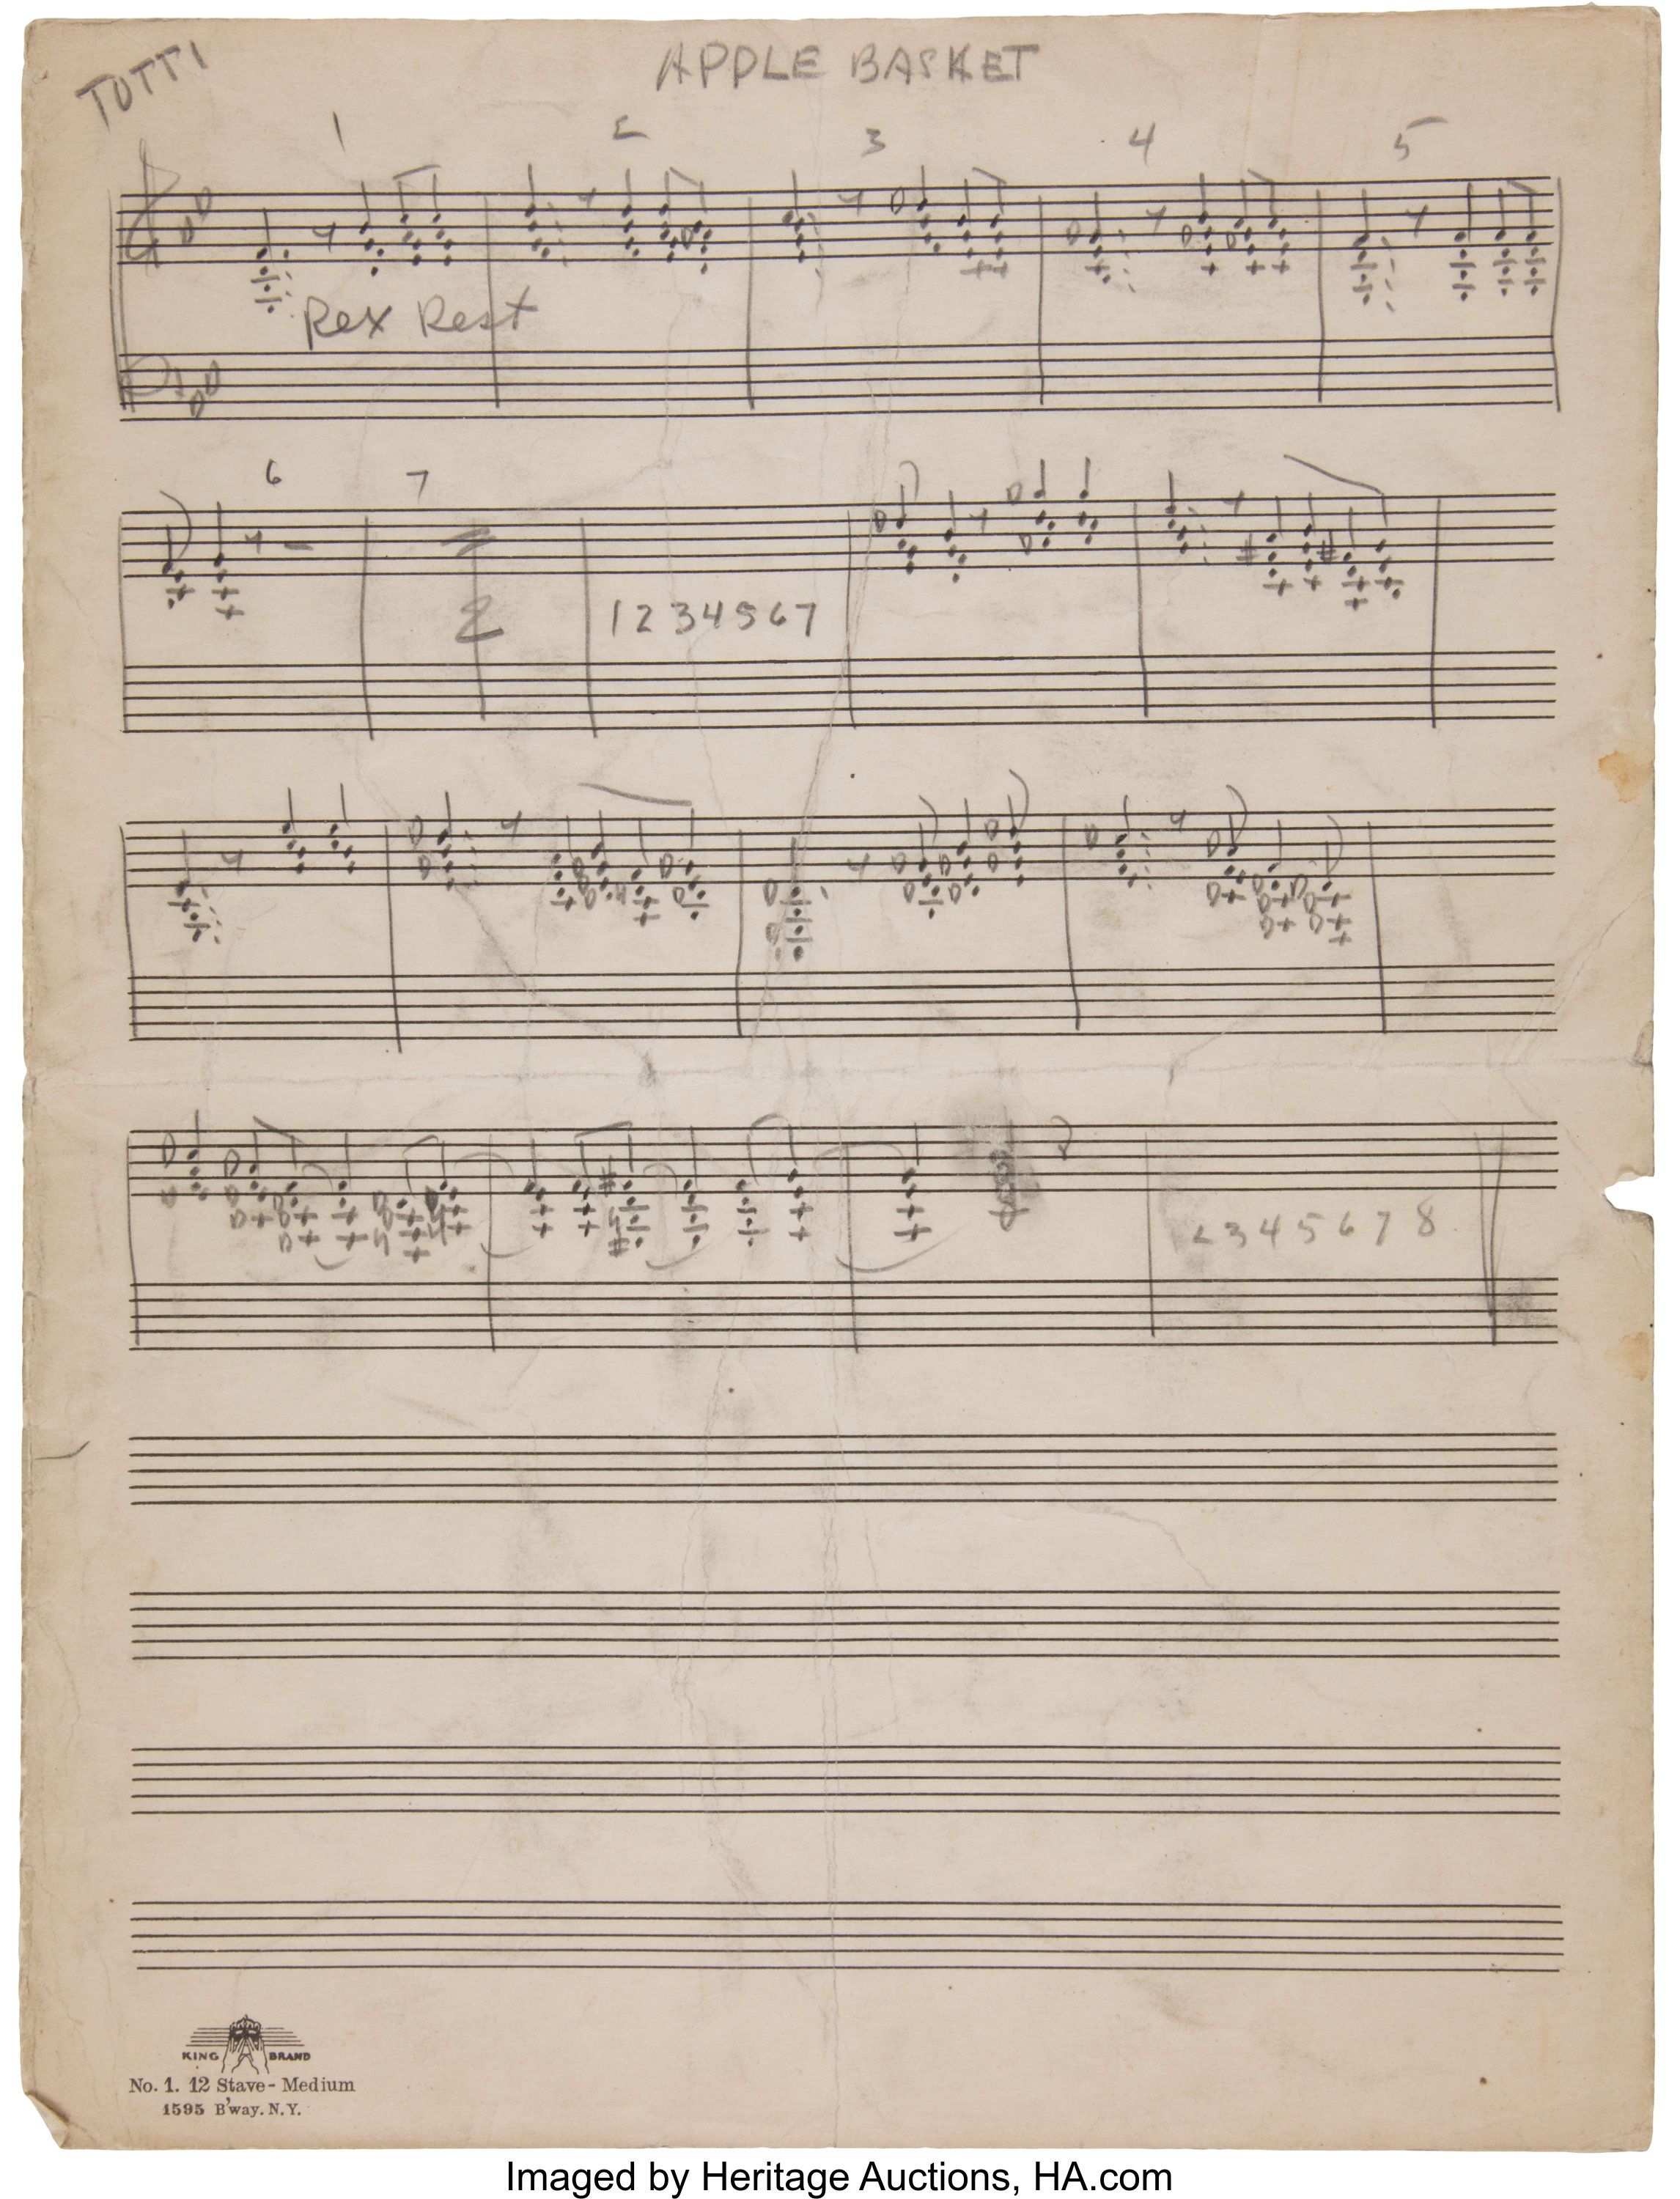 TUTTI
APPLE BASKET
1 2 3 4 5
Rex Rest
6 7
1 2 3 4 5 6 7
2 3 4 5 6 7 8
KING BRAND
No. 1. 12 Stave - Medium
1595 B'way. N.Y.
Imaged by Heritage Auctions, HA.com